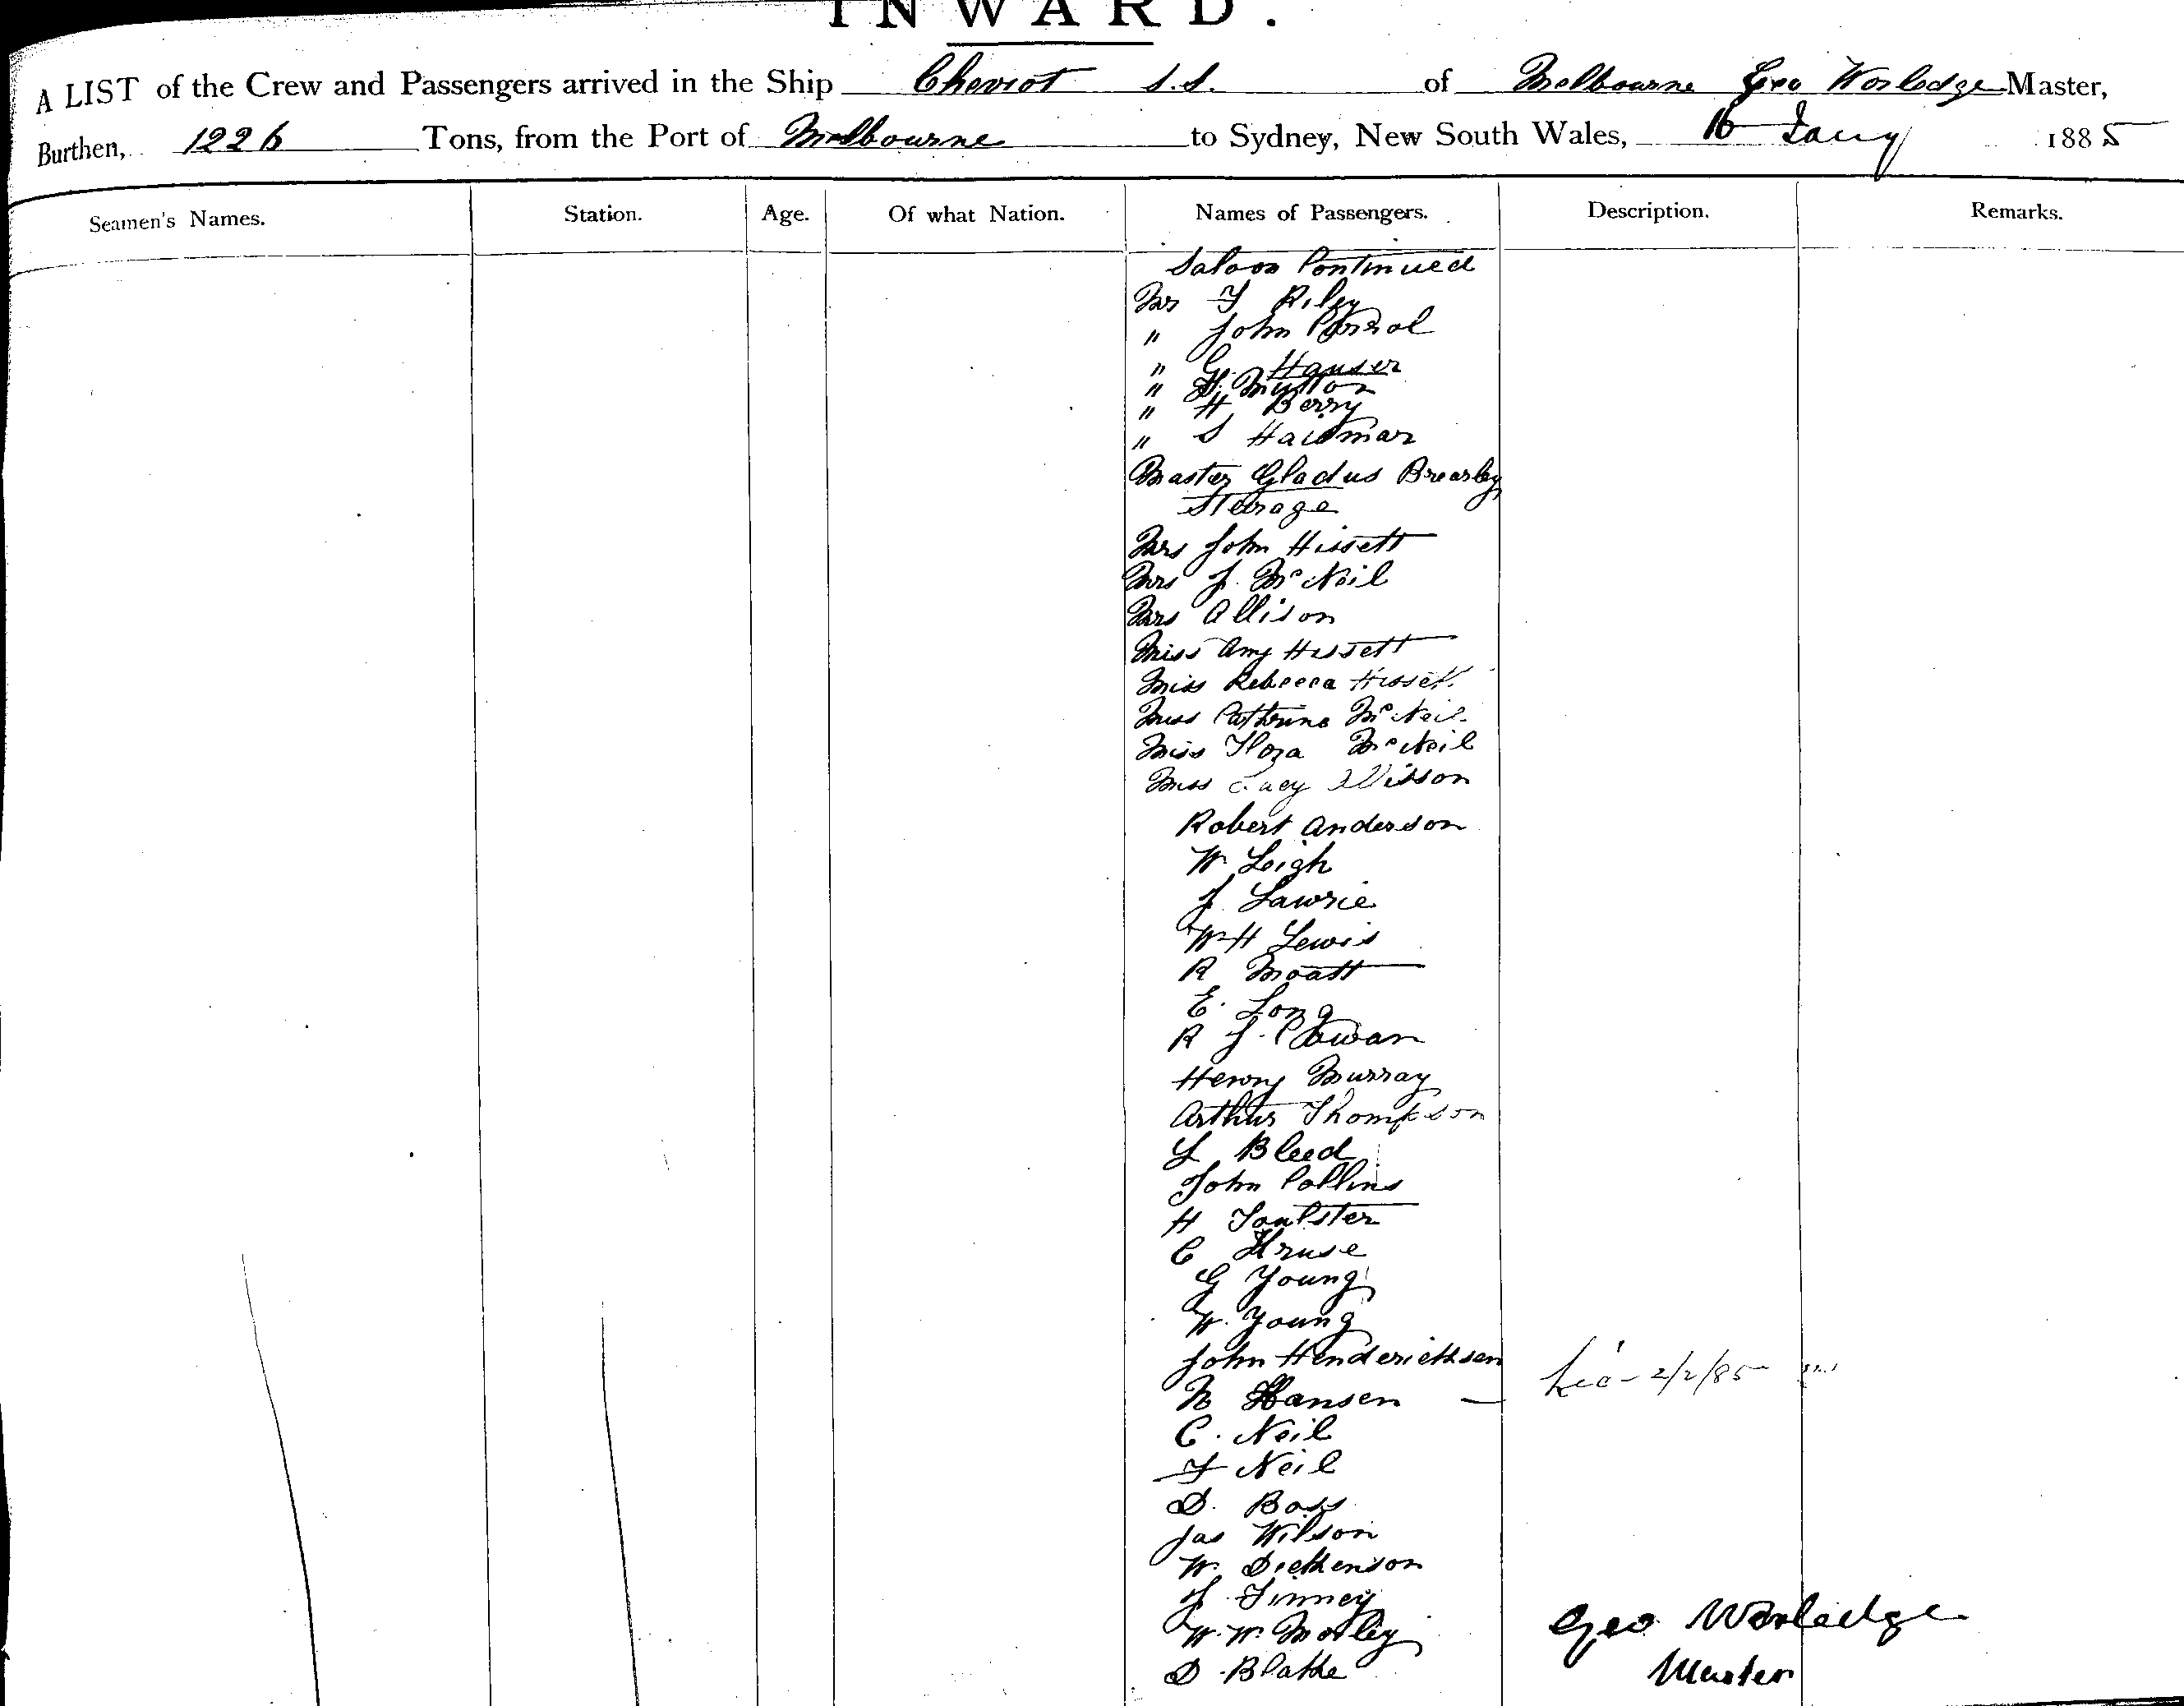 INWARD.
A LIST of the Crew and Passengers arrived in the Ship Cheviot S.S. of Melbourne Geo Worledge Master,
Burthen, 1226 Tons, from the Port of Melbourne to Sydney, New South Wales, 16 Jany 1885
Seamen's Names. Station. Age. Of what Nation. Names of Passengers. Description. Remarks.
Saloon Continued
Mr F Riley
" John
" G. Hauser
" H. Mutton
" H Berry
" S
Master Gladus Brearley
Sterage
Mrs John Hissett
Mrs J. McNeil
Mrs Allison
Miss Amy Hissett
Miss Rebecca Hissett
Miss Cathrine McNeil
Miss Flora McNeil
Miss Lucy Allisson
Robert Anderson
W Leigh
J. Lawrie
W H Lewis
R Moatt
E. Long
R J. Cowan
Henry Murray
Arthur Thompson
L Bleed
John Collins
H
C Kruse
G Young
W. Young
John Henderickson
N Hansen — 2/2/85
C. Neil
F Neil
D. Boss
Jas Wilson
W. Dickenson
J. Finney
W. W. Morley
D. Blake
Geo Worledge
Master